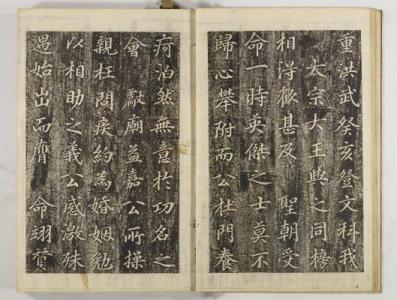 重洪武癸亥登文科我
太宗大王與之同榜
相得歡甚及 聖朝受
命一時英傑之士莫不
歸心攀附而公杜門養
疴泊然無意於功名之
會獻廟益嘉公所操
親枉問疾約為婚姻勉
以相助之義公感激殊
遇始出而膺 命翊贊